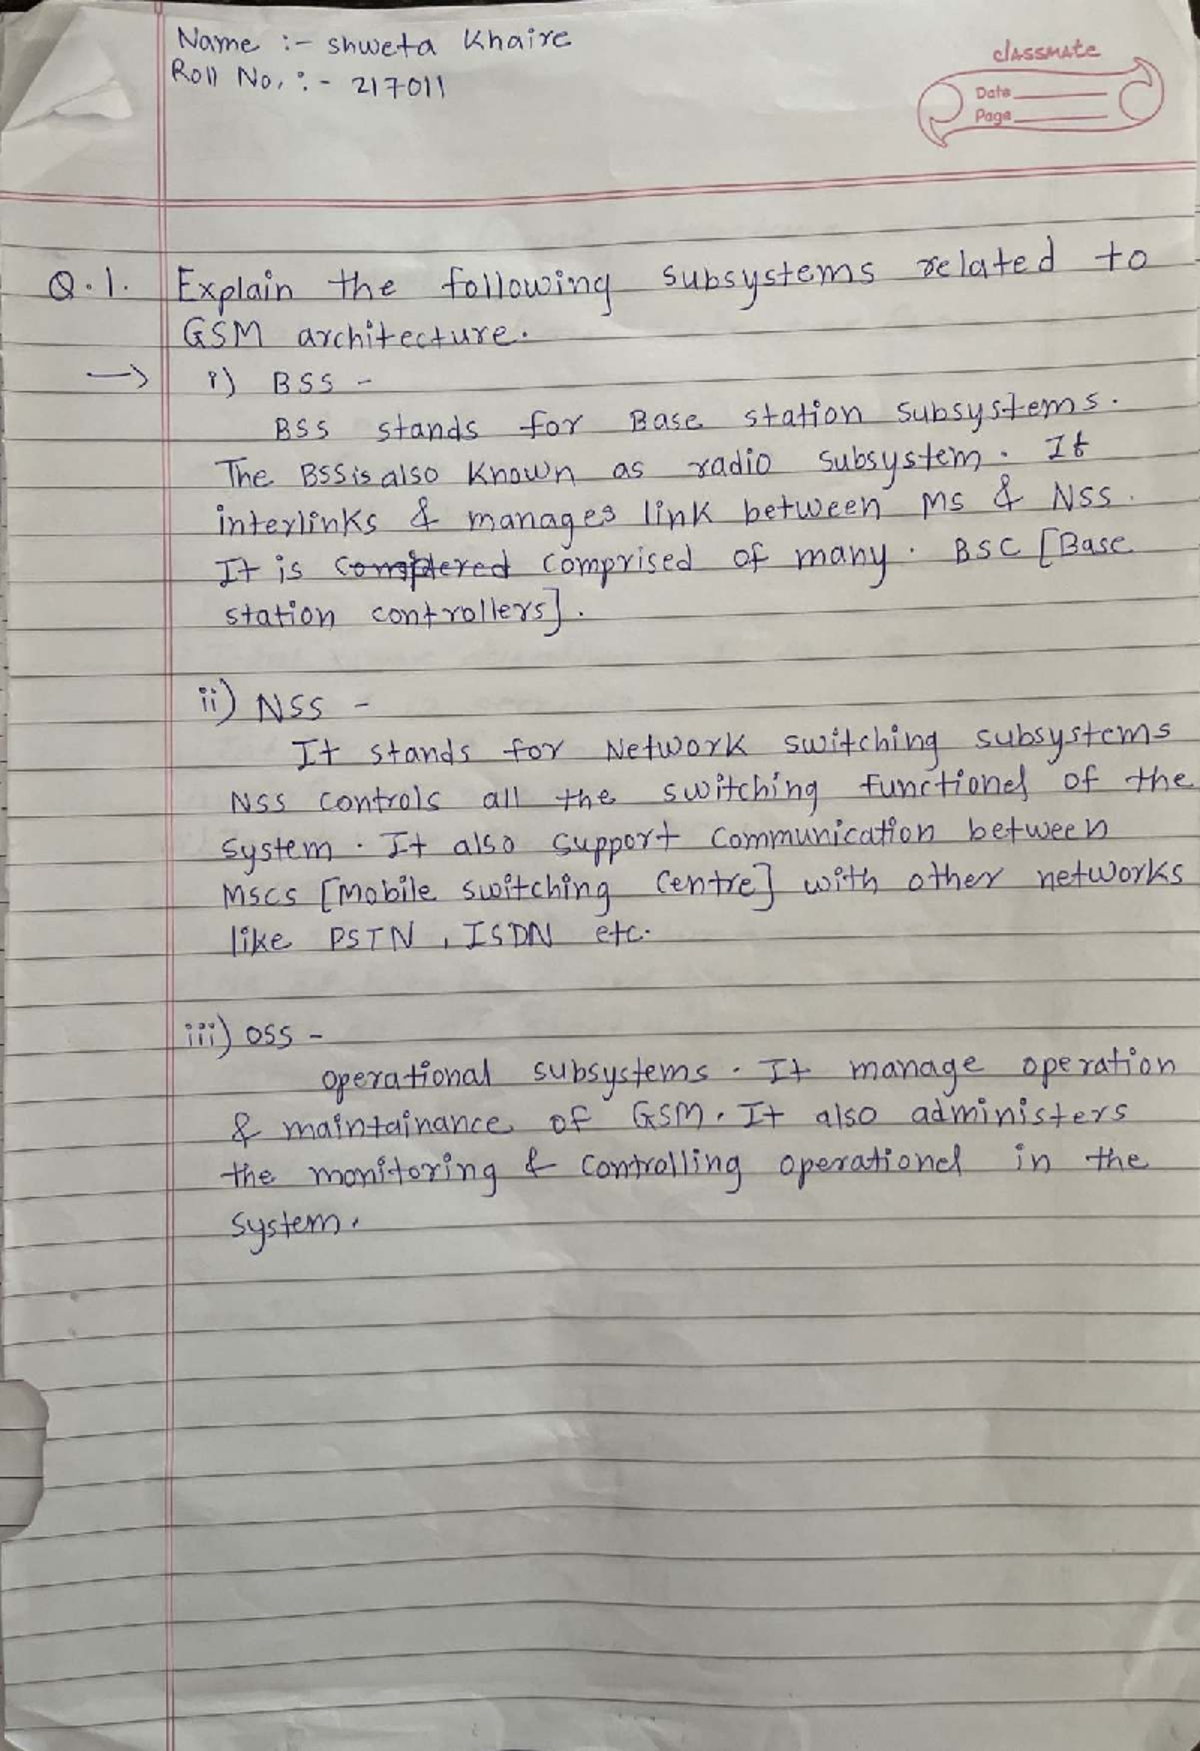 Name :- Shweta Khaire
Roll No. :- 217011
classmate
Date
Page
Q.1. Explain the following subsystems related to
GSM architecture.
→ i) BSS -
BSS stands for Base station subsystems.
The BSS is also known as radio subsystem. It
interlinks & manages link between MS & NSS.
It is comprised of many. BSC [Base
station controllers].
ii) NSS -
It stands for Network switching subsystems
NSS controls all the switching functionel of the
system. It also support communication between
MSCs [Mobile switching Centre] with other networks
like PSTN, ISDN etc.
iii) OSS -
operational subsystems. It manage operation
& maintainance of GSM. It also administers
the monitoring & controlling operationel in the
system.